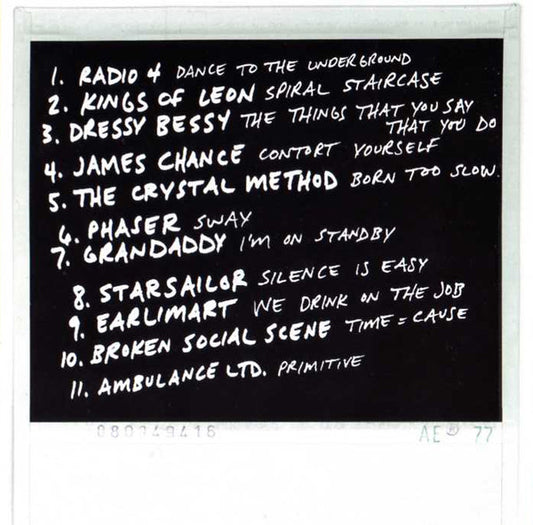 1. RADIO 4 DANCE TO THE UNDERGROUND
2. KINGS OF LEON SPIRAL STAIRCASE
3. DRESSY BESSY THE THINGS THAT YOU SAY
THAT YOU DO
4. JAMES CHANCE CONTORT YOURSELF
5. THE CRYSTAL METHOD BORN TOO SLOW.
6. PHASER SWAY
7. GRANDADDY I'M ON STANDBY
8. STARSAILOR SILENCE IS EASY
9. EARLIMART WE DRINK ON THE JOB
10. BROKEN SOCIAL SCENE TIME = CAUSE
11. AMBULANCE LTD. PRIMITIVE
AE 77